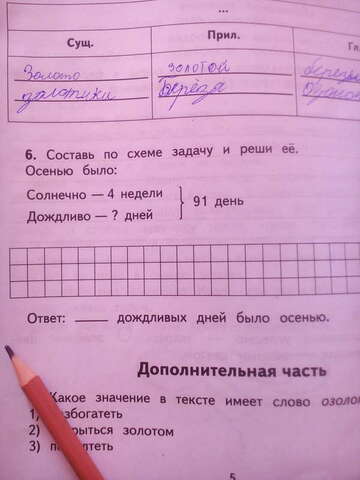 ...
Сущ. Прил. Гл
Золото золотой
золотики Берёза
6. Составь по схеме задачу и реши её.
Осенью было:
Солнечно — 4 недели
Дождливо — ? дней
91 день
Ответ: ____ дождливых дней было осенью.
Дополнительная часть
Какое значение в тексте имеет слово озоло
1) збогатеть
2) рыться золотом
3) по лтеть
5